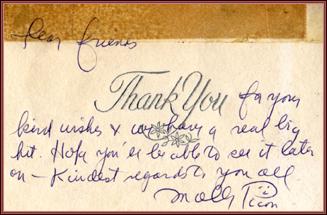 Dear friends
Thank You for your
kind wishes & we have a real big
hit. Hope you'll be able to see it later
on – Kindest regards to you all
Molly Picon